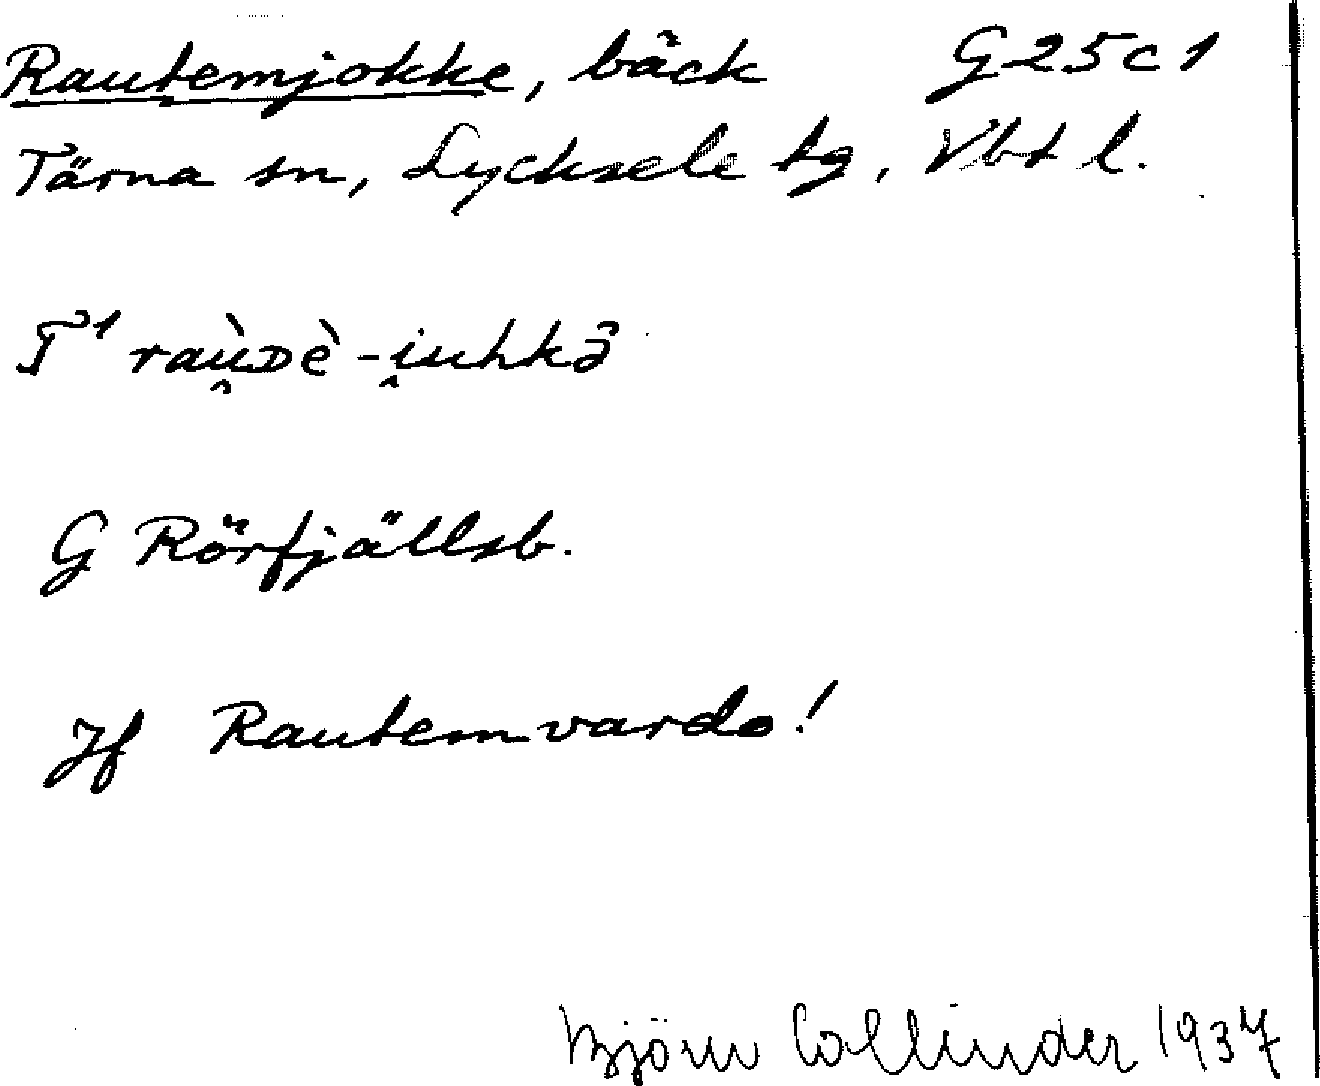 Rautemjokke, bäck G25c1
Tärna sn, Lycksele tg, Vbt l.
T¹ raù̯ᴅè-i̯uhkɜ̑
G Rörfjällsb.
Jf Rautemvardo!
Björn Collinder 1937